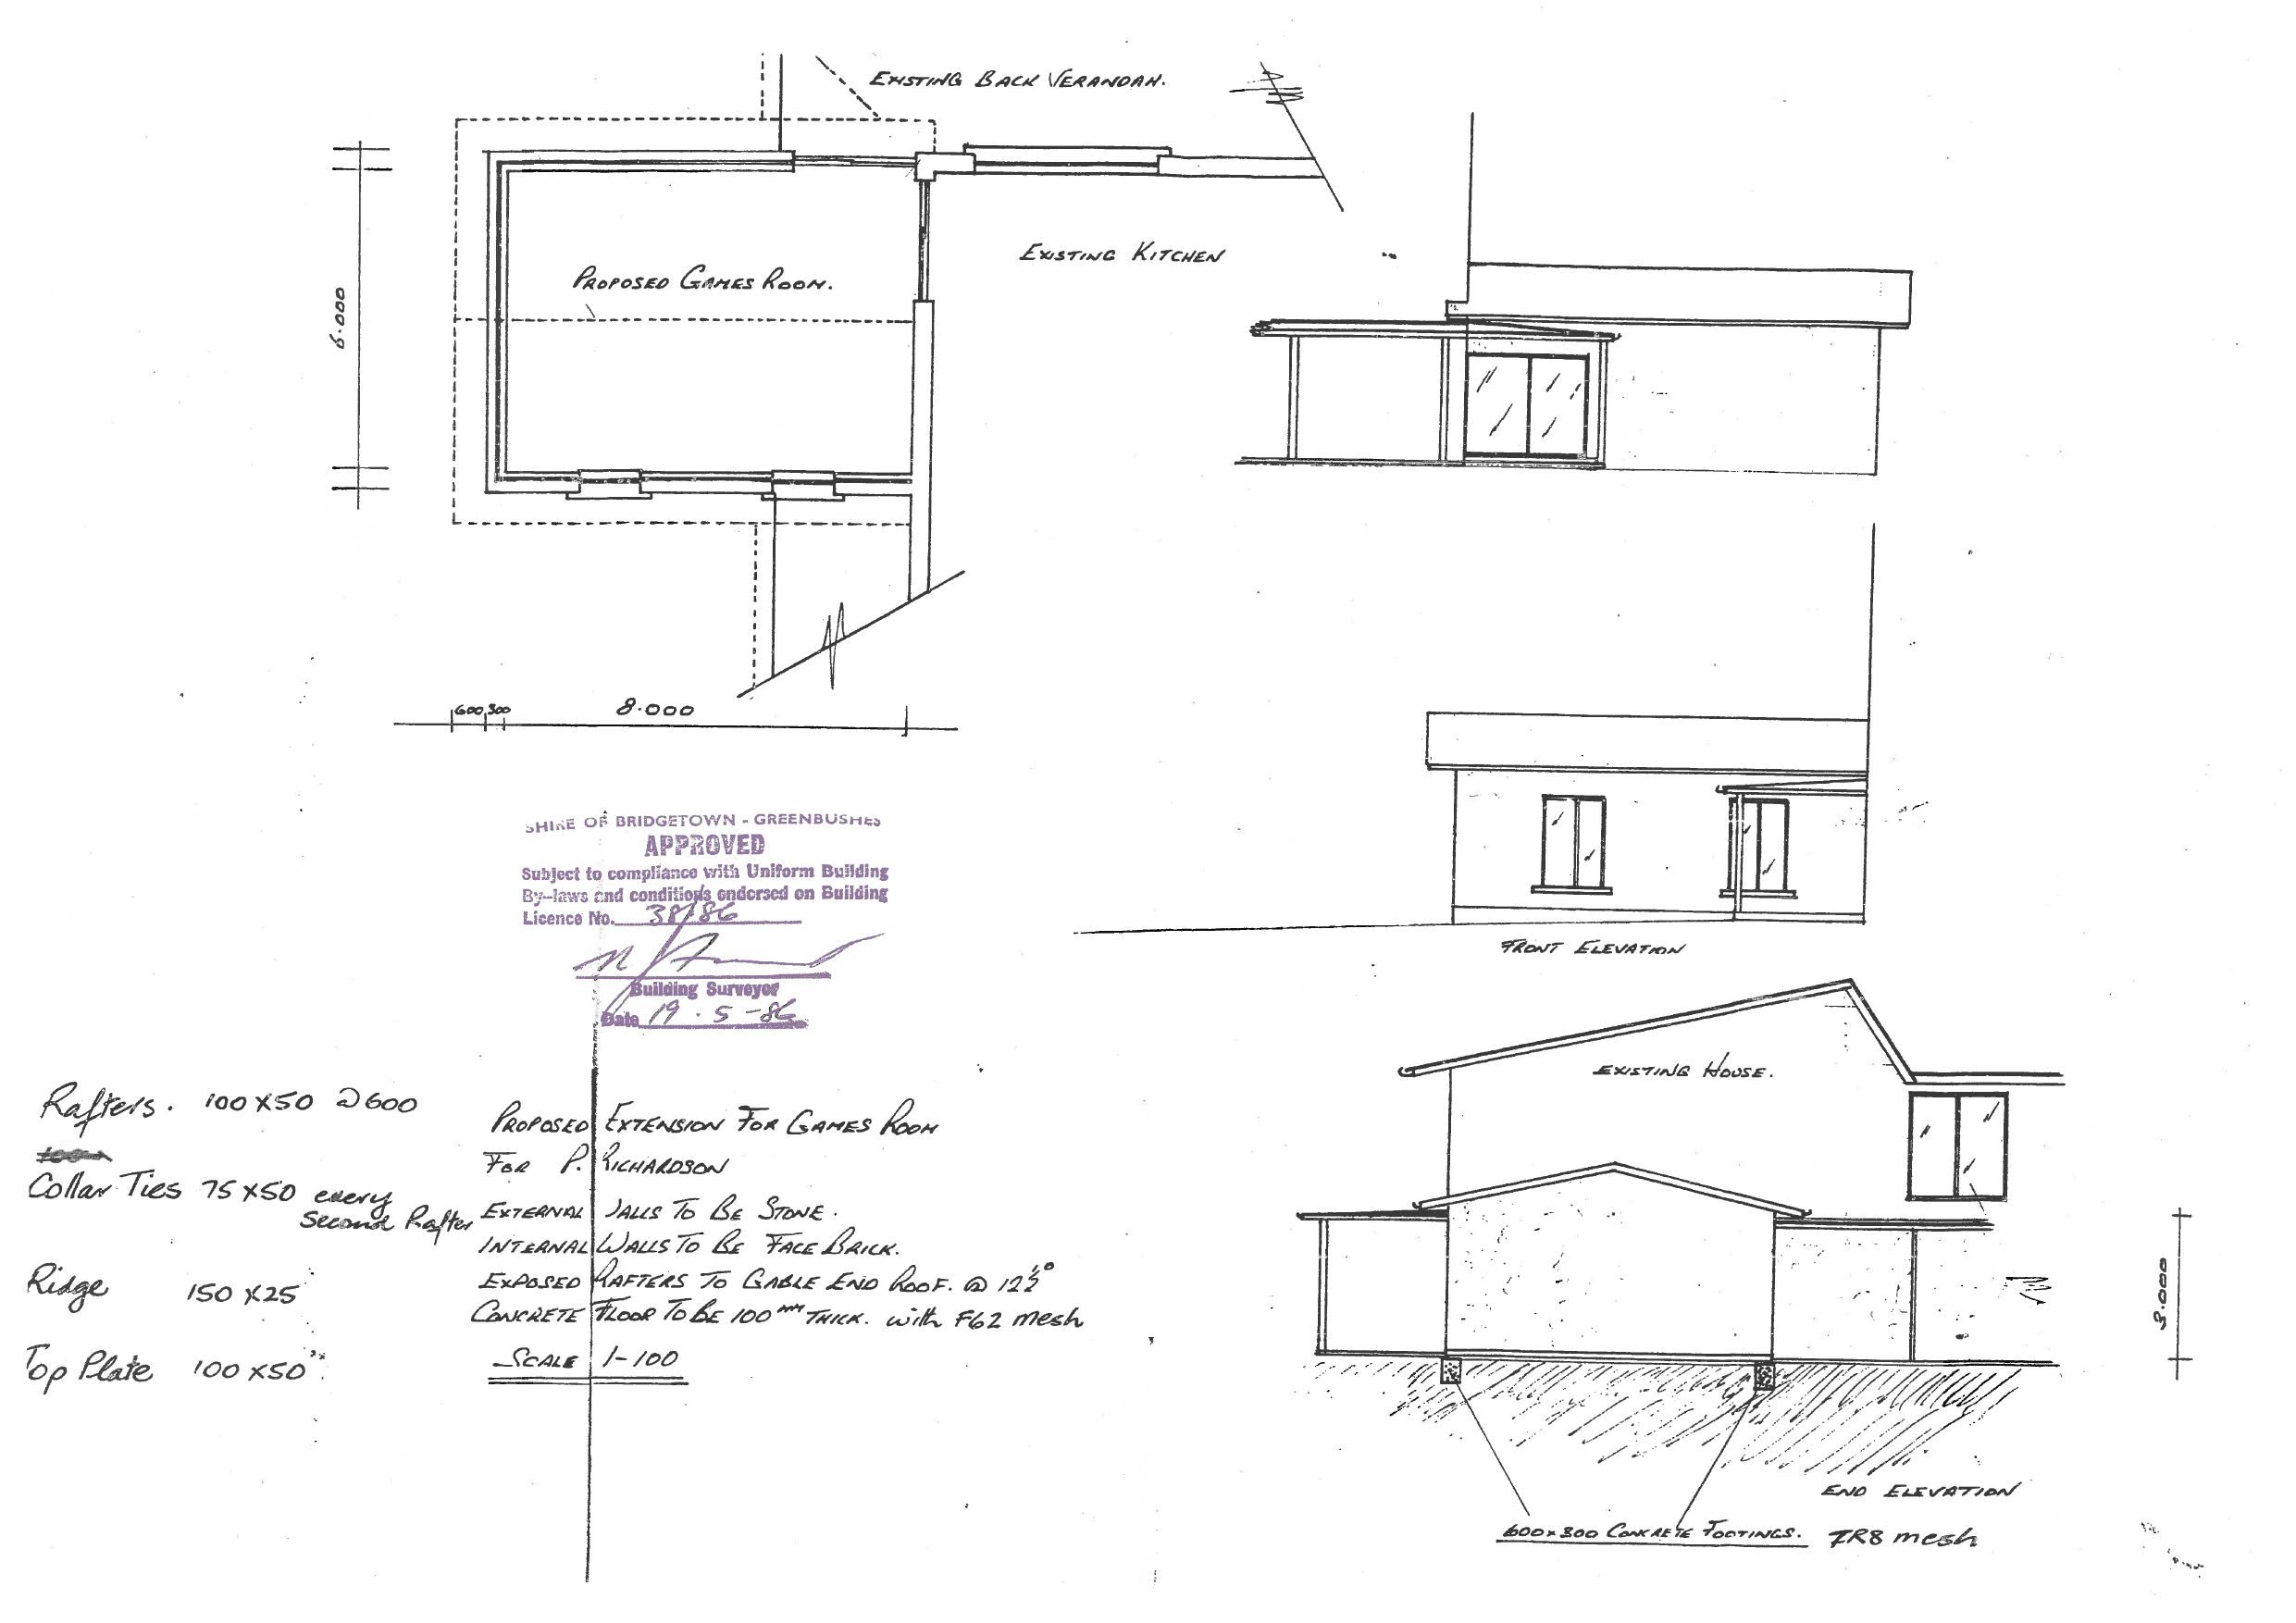 EXISTING BACK VERANDAH.
EXISTING KITCHEN
PROPOSED GAMES ROOM.
6.000
600 300 8.000
SHIRE OF BRIDGETOWN - GREENBUSHES
APPROVED
Subject to compliance with Uniform Building
By-laws and conditions endorsed on Building
Licence No. 38/86
Building Surveyor
Date 19.5-86
FRONT ELEVATION
EXISTING HOUSE.
3.000
Rafters. 100x50 @600
Collar Ties 75x50 every
Second Rafter
Ridge 150x25
Top Plate 100x50
PROPOSED EXTENSION FOR GAMES ROOM
FOR P. RICHARDSON
EXTERNAL WALLS TO BE STONE.
INTERNAL WALLS TO BE FACE BRICK.
EXPOSED RAFTERS TO GABLE END ROOF. @ 12½°
CONCRETE FLOOR TO BE 100MM THICK. with F62 mesh
SCALE 1-100
END ELEVATION
600x300 CONCRETE FOOTINGS. 7R8 mesh